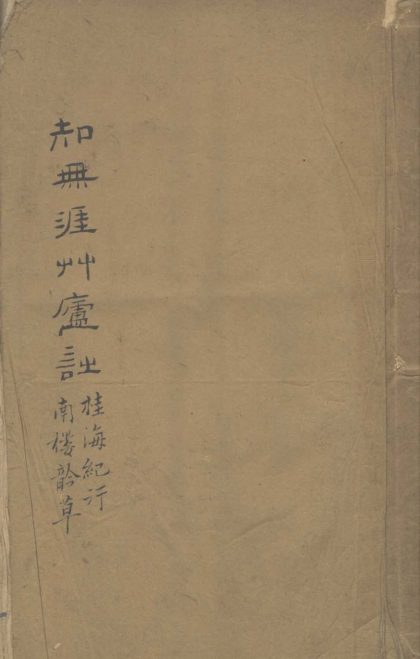 知無涯艸廬詩
桂海紀行
南樓䪩草